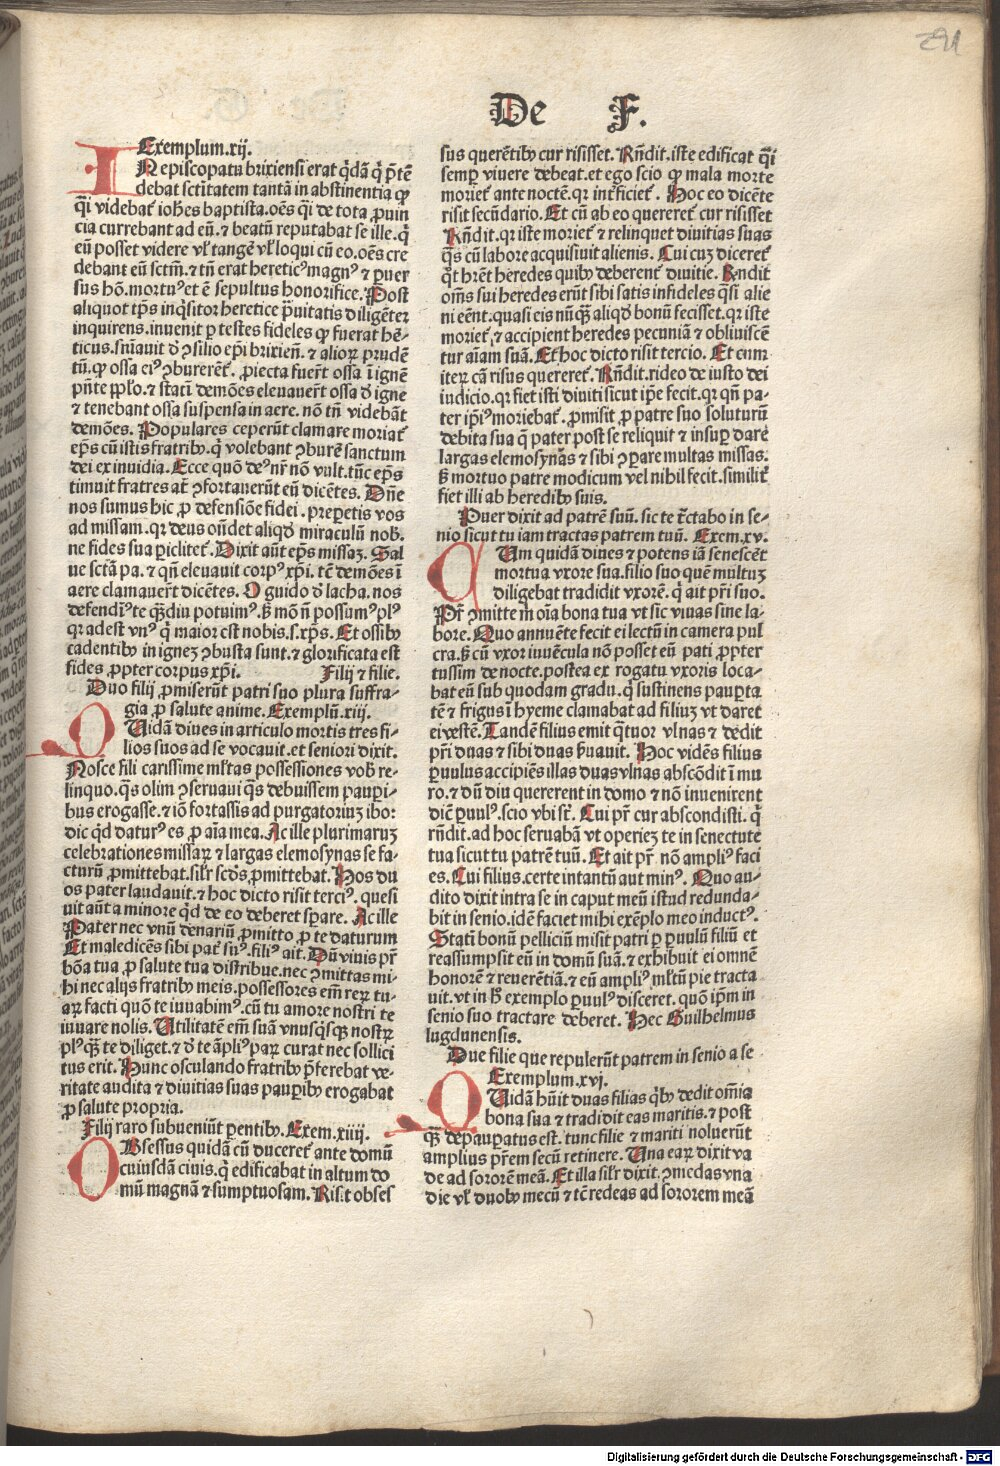 291
De F.
Exemplum.xij.
IN episcopatu brixiensi erat qͥdã qͥ p̃tẽ
debat sctĩtatem tantã in abstinentia ꝙ
qͣi videbat̃ ioh̃es baptista.oẽs qͥi de tota ꝓuin
cia currebant ad eũ.⁊ beatũ reputabat se ille.qͥ
eũ posset videre vl̓ tangẽ vl̓ loqui cũ eo.oẽs cre
debant eũ sctm̃.⁊ tñ erat hereticꝰ magnꝰ ⁊ ꝑuer
sus hõ.mortuꝰ et ẽ sepultus honorifice.Post
aliquot tp̃s inqͥsitor heretice p̃uitatis diligẽter
inquirens.inuenit ꝑ testes fideles ꝙ fuerat hẽ-
ticus.sniãuit ð ꝯsilio ep̃i brixieñ.⁊ alioꝝ prudẽ
tũ.ꝙ ossa eiꝰ ꝯburerẽt̃. ꝓiecta fuer̃t ossa ĩ ignẽ
pñte pp̃lo.⁊ statĩ demões eleuauer̃t ossa ð igne
⁊ tenebant ossa suspensa in aere.nõ tñ videbãt̃
demões. Populares ceperũt clamare moriat̃
ep̃s cũ istis fratribꝰ.qͥ volebant ꝯburẽ sanctum
dei ex inuidia.Ecce quõ deꝰ nr̃ nõ vult.tũc ep̃s
timuit fratres at̃ ꝯfortauerũt eũ dicẽtes. Dñe
nos sumus hic ꝓ defensiõe fidei.preꝑetis vos
ad missam.qꝛ deus oñdet aliqð miraculũ nob̃.
ne fides sua ꝑiclitet̃. Dixit aũt ep̃s missaꝫ.Sal
ue sctã pa.⁊ qñ eleuauit corpꝰ xp̃i. tẽ demões ĩ
aere clamauer̃t dicẽtes. O guido ð lacha.nos
defendĩꝰ te qͣꝫdiu potuimꝰ.ß mõ ñ possumꝰ plꝰ
qꝛ adest vnꝰ qͥ maior est nobis.s.xp̃s. Et ossibꝰ
cadentibꝰ in ignez ꝯbusta sunt.⁊ glorificata est
fides ꝓpter corpus xp̃i. Filij ⁊ filie.
Duo filij ꝓmiserũt patri suo plura suffra-
gia ꝓ salute anime.Exemplũ.xiij.
QUidã diues in articulo mortis tres fi-
lios suos ad se vocauit.et seniori dixit.
Nosce fili carissime ml̓tas possessiones vob̃ re-
linquo.qͣs olim ꝯseruaui qͣs debuissem pauꝑi-
bus erogasse.⁊ iõ fortassis ad purgatoriuꝫ ibo:
dic qͥd daturꝰ es ꝓ aĩa mea.Ac ille plurimaruꝫ
celebrationes missaꝝ ⁊ largas elemosynas se fa-
cturũ ꝓmittebat.sil̓r scðs ꝓmittebat. Hos du
os pater laudauit.⁊ hoc dicto risit terciꝰ. quesi
uit aũt a minore qͥd de eo deberet sꝑare. Ac ille
Pater nec vnũ denariũ ꝓmitto ꝓ te daturum
Et maledicẽs sibi pat̃ suꝰ.filiꝰ ait.Dũ viuis pr̃
bõa tua ꝓ salute tua distribue.nec ꝯmittas mi-
hi nec alijs fratribꝰ meis.possessores em̃ reꝝ tu-
aꝝ facti quõ te iuuabimꝰ.cũ tu amore nostri te
iuuare nolis. Utilitatẽ em̃ suã vnusqͥsqꝫ nostꝝ
plꝰ qͣꝫ te diliget.⁊ ð te ãpliꝰ paꝝ curat nec sollici
tus erit. Hunc osculando fratribꝰ p̃ferebat ve-
ritate audita ⁊ diuitias suas pauꝑibꝰ erogabat
ꝓ salute propria.
Filij raro subueniũt ꝑentibꝰ.Exem.xiiij.
OBsessus quidã cũ duceret̃ ante domũ
cuiusdã ciuis.qͥ edificabat in altum do
mũ magnã ⁊ sumptuosam. Risit obses
sus querẽtibꝰ cur risisset. Rñdit.iste edificat qͣi
semꝑ viuere debeat.et ego scio ꝙ mala morte
moriet̃ ante noctẽ.qꝛ int̃ficiet̃. Hoc eo dicẽte
risit secũdario. Et cũ ab eo quereret̃ cur risisset
Rñdit.qꝛ iste moriet̃ ⁊ relinquet diuitias suas
qͣs cũ labore acquisiuit alienis. Cui cuꝫ diceret̃
qͥt hr̃ẽt heredes quibꝰ deberent̃ diuitie. Rñdit
om̃s sui heredes erũt sibi satis infideles qͣsi alie
ni eẽnt.quasi eis nũqͣꝫ aliqð bonũ fecisset.qꝛ iste
moriet̃.⁊ accipient heredes pecuniã ⁊ obliuiscẽ
tur aĩam suã. Et hoc dicto risit tercio. Et cum
iteꝝ cã risus quereret̃. Rñdit.rideo de iusto dei
iudicio.qꝛ fiet isti diuiti sicut ip̃e fecit.qꝛ qñ pa-
ter ip̃iꝰ moriebat̃.ꝓmisit ꝓ patre suo soluturũ
debita sua q̃ pater post se reliquit ⁊ insuꝑ darẽ
largas elemosynãs ⁊ sibi ꝯꝑare multas missas.
ß mortuo patre modicum vel nihil fecit.similit̃
fiet illi ab heredibꝰ suis.
Puer dixit ad patrẽ suũ.sic te tr̃ctabo in se-
nio sicut tu iam tractas patrem tuũ. Exem.xv.
CUm quidã diues ⁊ potens iã senescẽt
mortua vxore sua.filio suo quẽ multuꝫ
diligebat tradidit vxorẽ.qͥ ait pr̃i suo.
Pr̃ ꝯmitte m̃ oĩa bona tua vt sic viuas sine la-
bore. Quo annuẽte fecit ei lectũ in camera pul
cra.ß cũ vxor iuuẽcula nõ posset eũ pati ꝓpter
tussim de nocte.postea ex rogatu vxoris loca-
bat eũ sub quodam gradu.qͥ sustinens pauꝑta
tẽ ⁊ frigus ĩ hyeme clamabat ad filiuꝫ vt daret
ei vestẽ.Tandẽ filius emit qͣtuor vlnas ⁊ dedit
pr̃i duas ⁊ sibi duas p̃uauit. Hoc vidẽs filius
ꝑuulus accipiẽs illas duas vlnas abscõdit ĩ mu
ro.⁊ dũ diu quererent in domo ⁊ nõ inuenirent
dic̃ ꝑuulꝰ.scio vbi st̃. Cui pr̃ cur abscondisti.qͥ
rñdit.ad hoc seruabã vt operiez te in senectute
tua sicut tu patrẽ tuũ. Et ait pr̃ nõ ampliꝰ faci
es.Cui filius.certe intantũ aut minꝰ. Quo au-
dito dixit intra se in caput meũ istud redunda-
bit in senio.idẽ faciet mihi exẽplo meo inductꝰ.
Statĩ bonũ pelliciũ misit patri ꝑ ꝑuulũ filiũ et
reassumpsit eũ in domũ suã.⁊ exhibuit ei omnẽ
honorẽ ⁊ reuerẽtiã.⁊ eũ ampliꝰ ml̓tũ pie tracta
uit.vt in h̃ exemplo ꝑuulꝰ disceret.quõ ip̃m in
senio suo tractare deberet. Hec Guilhelmus
lugdunensis.
Due filie que repulerũt patrem in senio a se
Exemplum.xvj.
QUidã hũit duas filias qͥbꝰ dedit om̃ia
bona sua ⁊ tradidit eas maritis.⁊ post
qͣꝫ depauꝑatus est.tunc filie ⁊ mariti noluerũt
amplius pr̃em secũ retinere. Una eaꝝ dixit va
de ad sororem meã. Et illa sil̓r dixit.ꝯmedas vna
die vl̓ duobꝰ mecũ ⁊ tẽ redeas ad sororem meã
Digitalisierung gefördert durch die Deutsche Forschungsgemeinschaft - DFG